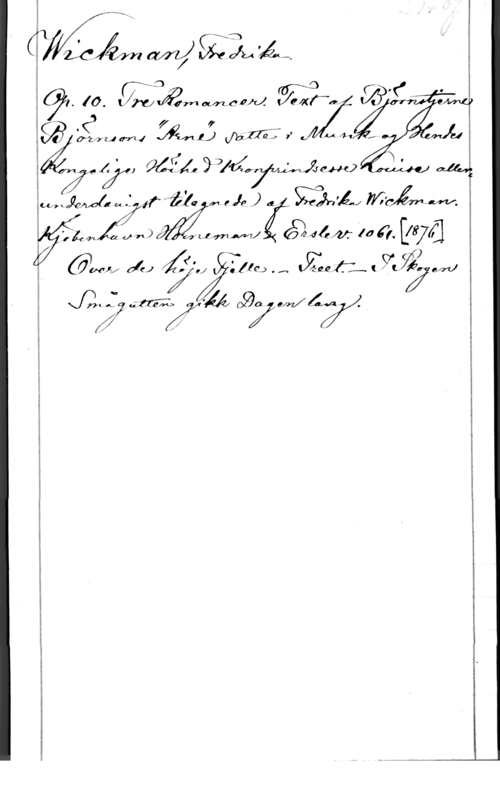 Wickman, Fredrika.
Op. 10. Tre Romancer. Text af Björnstjerne
Björnsons "Arne" satte i Musik og Hendes
Kongelige Höihed Kronprindsesse Louise aller,
underdanigst tilegnede af Fredrika Wickman.
Kjöbenhavn Horneman & Erslev. 1061. [1876]
Over de höje Fjelle. – Træet. – I Skogen
Smågutten gikk Dagen lang.